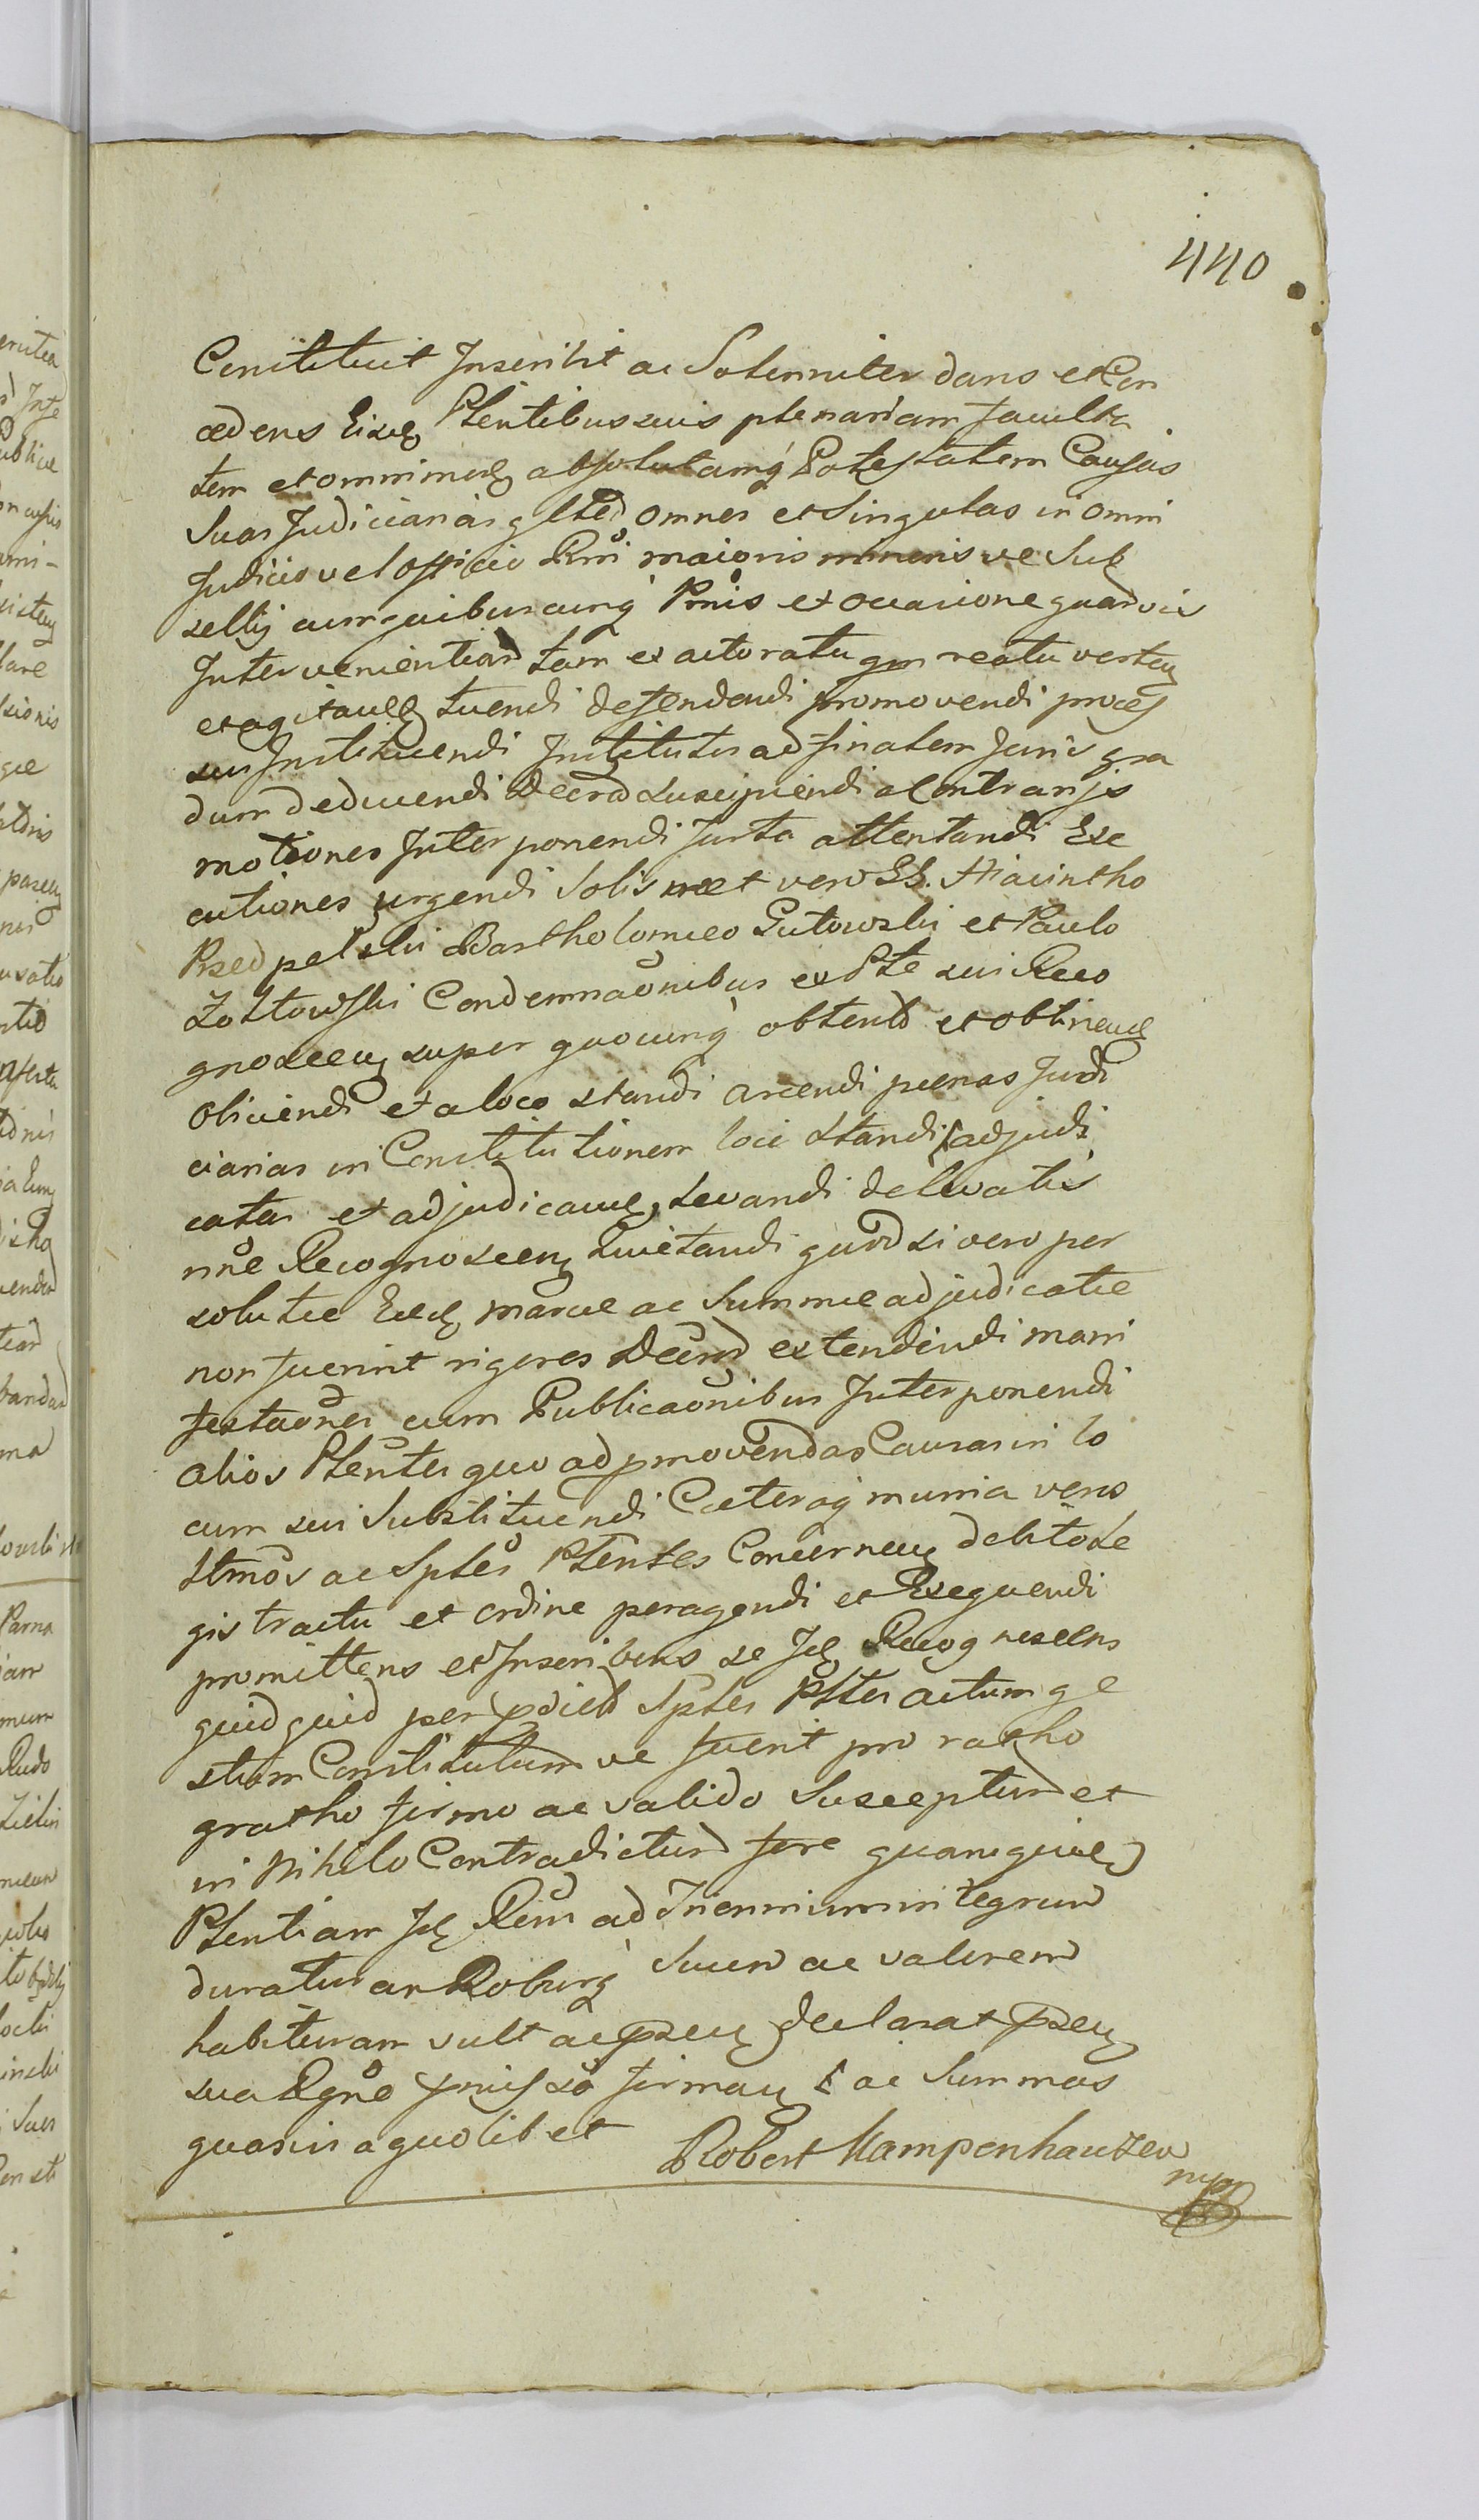 440
Constituit Inscribit ac Solenniter dans et Con
cedens Eisd Plentibus suis plenariam faculta
tem et omnimod absolutamq Potestatem Causas
Suas Judiciarias gltd omnes et Singulas in omni
Judicio vel officio Rni maioris minoris ve Sub
sellij cum quibuscunq Pnis et occasione quarvis
Intervenientiad tam ex actoratu qm reatu verten
et agitand tuendi defendendi promovendi proces
sus Instituendi Institutos ad finalem Juris gra
dum deducendi Decrad suscipiendi a Contrarijs
motiones Interponendi Jurta attentandi Exe
cutiones urgendi Solis met vero GG. Hiacintho
Przedpelski Bartholomeo Gutowski et Paulo
Zołtowski Condemnaonibus ex Pte sui Reco
gnoscen super quocunq obtentd et obtinend
obiiciendi et a loco standi arcendi pœnas Judi
ciarias in Constitutionem loci Standi adjudi
catas et adjudicand, levandi de levatis
nne Recognoscen Quietandi quod si vero per
solutæ Eæd marcæ ac Summæ adjudicatæ
non fuerint rigores Decrod extendendi mani
festaones cum Publicaonibus Interponendi
alios Plentes quo ad pmovendas Causas in lo
cum sui Substituendi Cæteraq munia veros
ltmos ac Sptes Plentes Concernen debito Le
gis tractu et ordine peragendi et Exequendi
promittens et Inscribens se Id Recognoscens
quidquid per pdictd Sptes Pltes actum ge
stum Constitutum ve fuerit pro ratho
gratho firmo ac valido Suscepturd et
in Nihilo Contradicturd fore quamquid
Plentiam Id Rem ad Triennium integrum
duraturam Roburq Suum ac valorem
habituram vult ac psen declarat psen
sua Rgne pmisso firman ac Summas
quasvis a quolibet
Robert Kampenhauzen
mpp